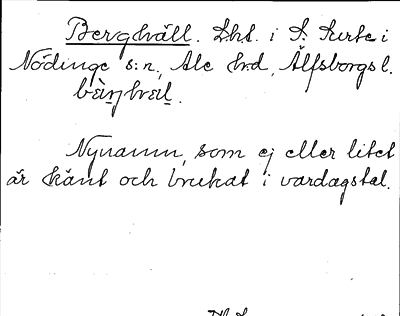 Berghäll. Lht. i S. Surte i
Nödinge s:n, Ale hrd, Älfsborgs l.
Nynamn, som ej eller litet
är känt och brukat i vardagstal.